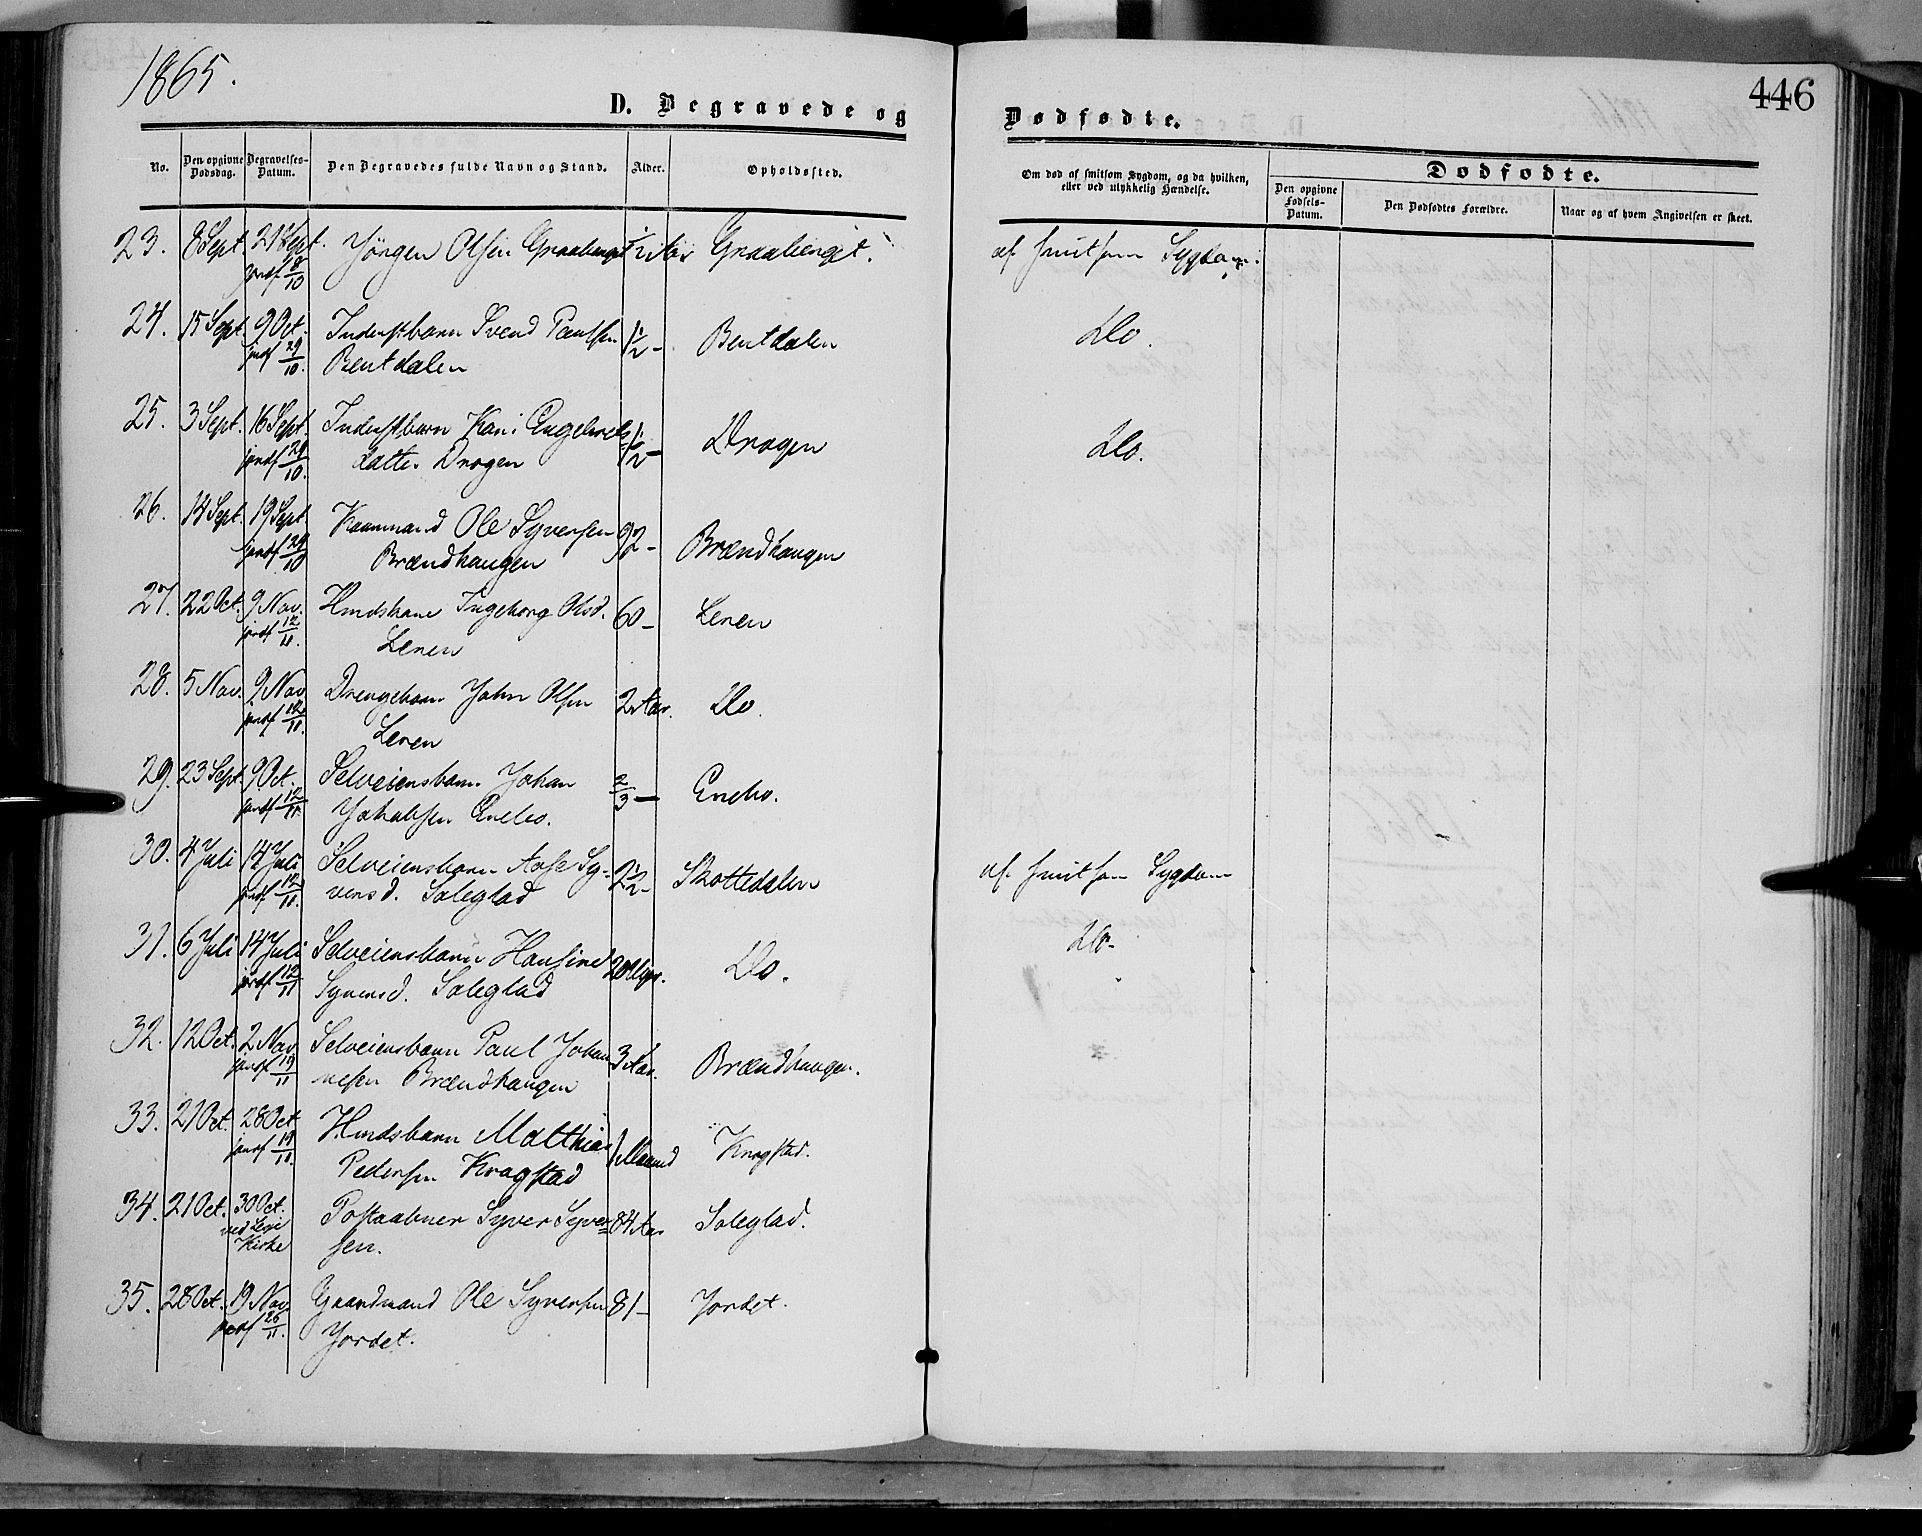 1865.
D. Begravede og
Dødfødte.
446
No.
Den opgivne Dødsdag.
Begravelses-Datum.
Den Begravedes fulde Navn og Stand.
Alder.
Opholdssted.
Om død af smitsom Sygdom, og da hvilken, eller ved ulykkelig Hændelse.
Dødfødte.
Den opgivne Fødsels-Datum.
Den Dødfødtes Forældre.
Naar og af hvem Angivelsen er skeet.
23. 8 Sept. 21 Sept. Jörgen Olsen Graabenget 1/2 Aar Graabenget. af smitsom Sygdom.
jordf 8/10
24. 15 Sept. 9 Oct. Inderstbarn Svend Paulsen 1 1/2 - Bentdalen Do.
jordf 29/10. Bentdalen
25. 3 Sept. 16 Sept Inderstbarn Kari Engebrets 1/2 - Drogen Do.
jordf 29/10. datter Drogen
26. 14 Sept. 19 Sept Kaarmand Ole Syversen 92 - Brændhaugen
jordf 29/10 Brændhaugen
27. 22 Oct. 9 Nov. Huusbarn Ingeborg Olsd. 60 - Leren
jordf 12/11. Leren
28. 5 Nov. 9 Nov Drengebarn John Olsen 2 Aar. Do.
jordf 12/11. Leren
29. 23 Sept. 9 Oct. Selveiersbarn Johan 2/3 - Enebo.
jordf 12/11. Jakobsen Enebo.
30. 4 Juli 14 Juli Selveiersbarn Aase Sy- 2 1/2 - Skottedalen af smitsom Sygdom
jordf 12/11. versd. Soleglad
31. 6 Juli 14 Juli Selveiersbarn Hansine 20 Uger. Do. Do.
jordf 12/11 Syversd. Soleglad
32. 12 Oct. 2 Nov Selveiersbarn Paul Johan 3 Aar. Brændhaugen.
jordf 19/11 nesen Brændhaugen
33. 21 Oct. 28 Oct Huusbarn Matthias 1 Maaned Kragstad.
jordf 19/11. Pedersen Kragstad
34. 21 Oct. 30 Oct. Postaabner Syver Syver- 84 Aar Soleglad.
ved Kirke sen.
35. 28 Oct. 19 Nov Gaardmand Ole Syversen 81 - Jordet.
jordf 26/11. Jordet.